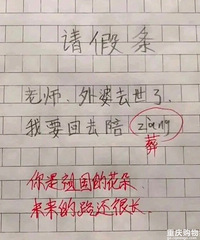 请假条
老师、外婆去世了、
我要回去陪 zang
葬
你是祖国的花朵
未来的路还很长
重庆购物